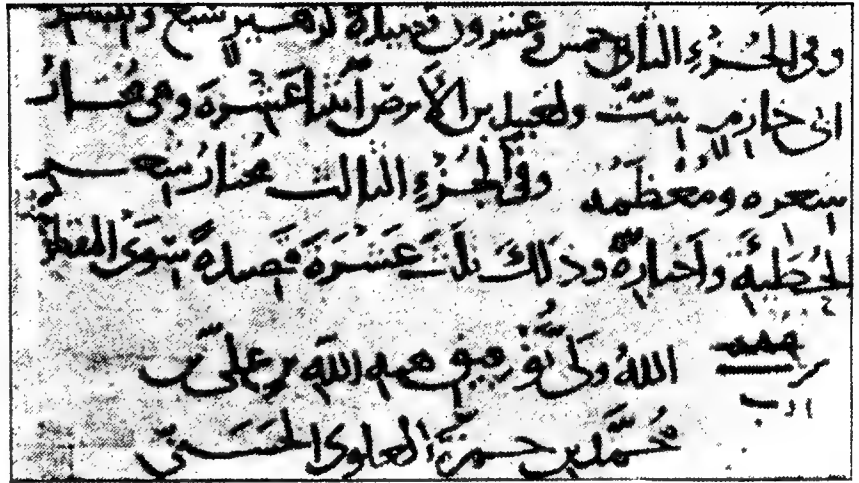 وفى الجزء الثانى خمس وعشرون قصيدة لزهير سبع ولبشر
ابى خازم ست ولعبيد بن الأبرص اثنتا عشرة وهى مختار
شعره ومعظمه وفى الجزء الثالث مختار شعر
الحُطَيئة وأخباره وذلك ثلث عشرة قصيدة سوى المقطعات
اللهُ ولى توفيق هبه الله بن على بن
محمّد بن حمزة العلوى الحسنىّ